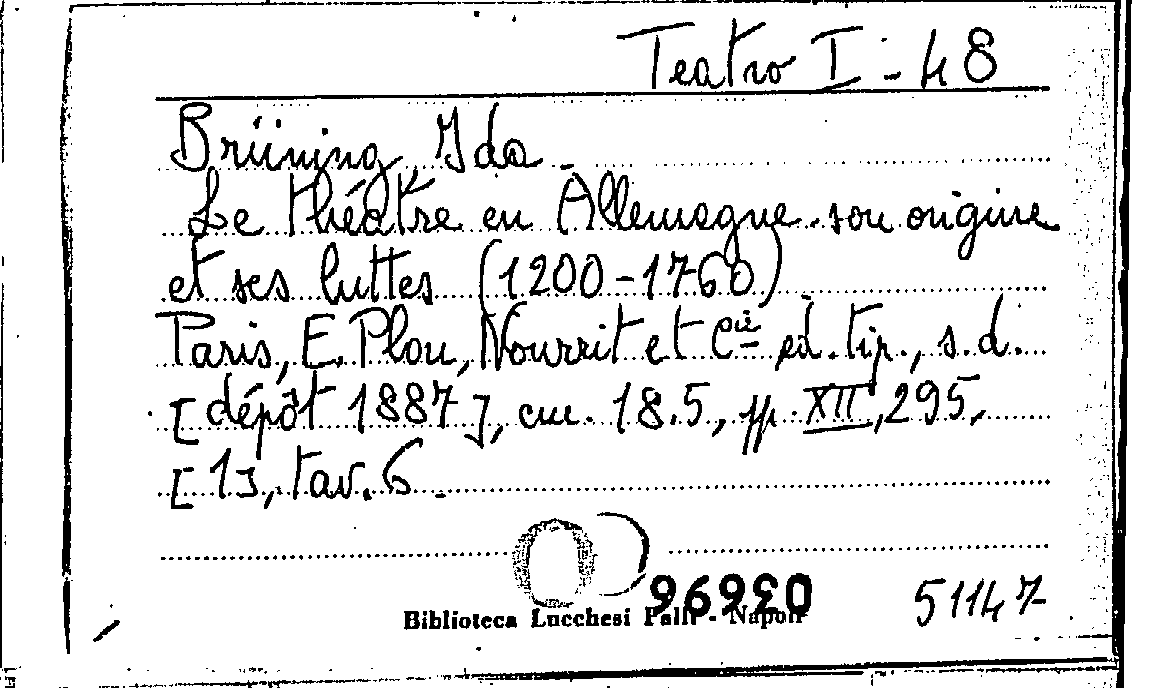 Teatro I - 48
Brüning Ida -
Le théâtre en Allemagne. son origine
et ses luttes (1200-1760)
Paris, E. Plon, Nourrit et Cie ed. tip., s.d.
[dépôt 1887], cm. 18.5, pp. XII, 295,
[1], tav. 6.
51147
Biblioteca Lucchesi Palli - Napoli